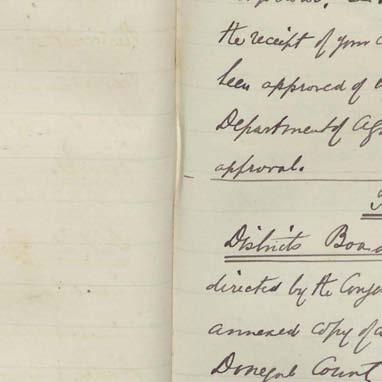 the receipt of your
been approved of
Department of Ag
approval.
Districts Boa
directed by the Cong
annexed copy of a
Donegal Count